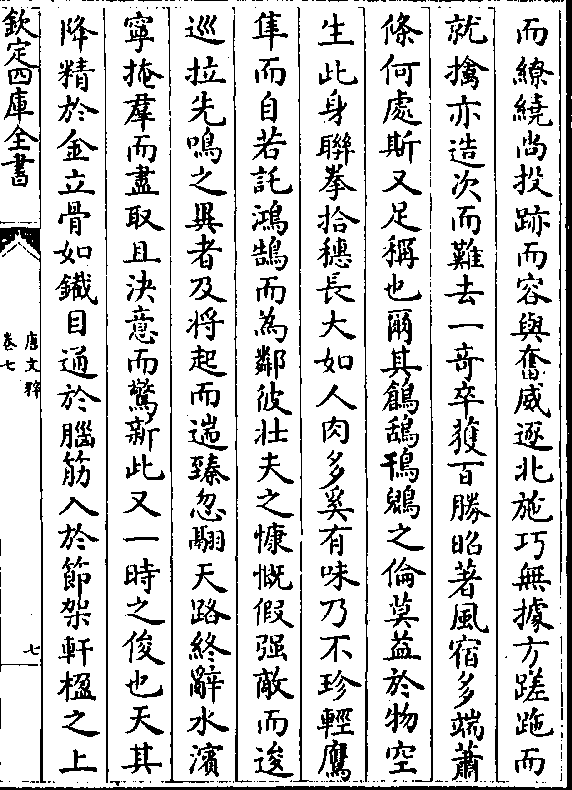 而繚繞尚投跡而容與奮威逐北施巧無據方蹉跎而
就擒亦造次而難去一竒卒獲百勝昭著風宿多端蕭
條何處斯又足稱也爾其鶬鴰鳵鶂之倫莫益於物空
生此身聯拳拾穗長大如人肉多奚有味乃不珍輕鷹
隼而自若託鴻鵠而為鄰彼壮夫之慷慨假强敵而逡
巡拉先鳴之異者及將起而遄臻忽翮天路終辭水濱
寧掩羣而盡取且決意而驚新此又一時之俊也天其
降精於金立骨如鐵目通於腦筋入於節架軒楹之上
欽定四庫全書
唐文粹
卷七
七